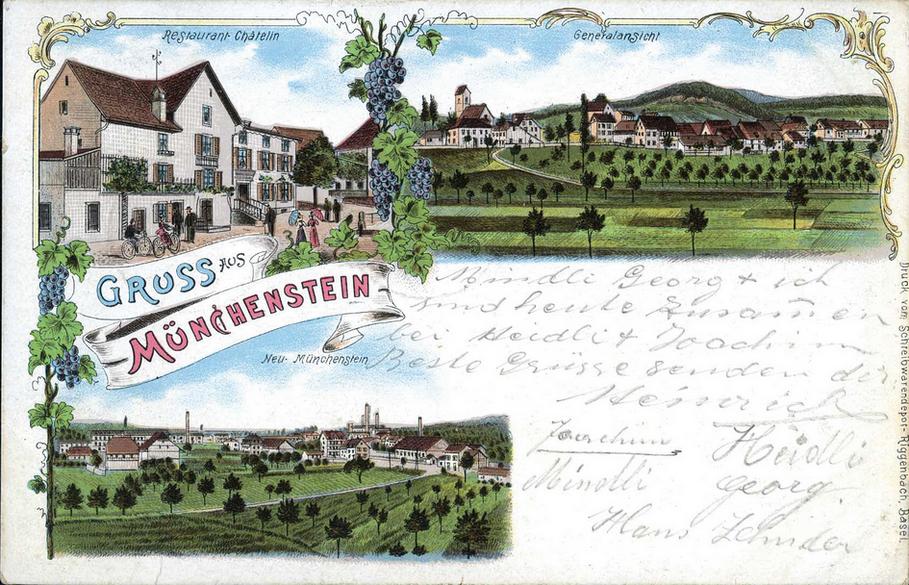 Restaurant Châtelin
Generalansicht
GRUSS AUS
MÜNCHENSTEIN
Neu-Münchenstein
Mindli Georg + ich
sind heute zusammen
bei Heidli & Joachim
Beste Grüsse senden dir
Heinrich
Joachim
Heidli
Mindli
Georg.
Hans Zehnder
Druck vom Schreibwarendepot-Riggenbach, Basel.